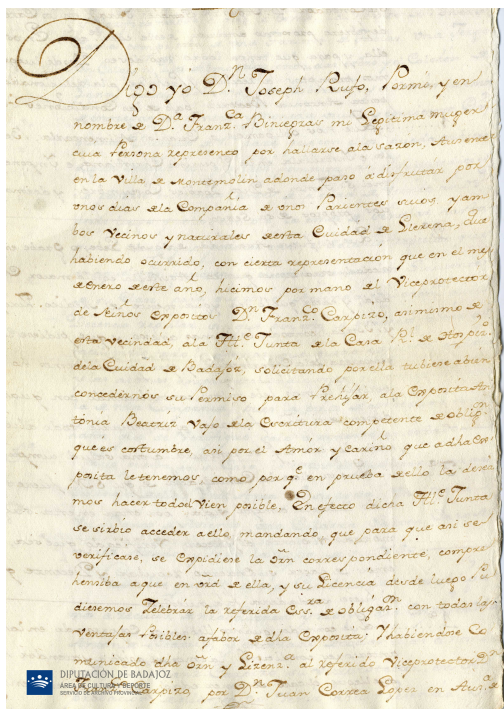 Digo yo Dn. Joseph Rufo, Por mi, y en
nombre de Da. Franzca. Biniegras mi Legitima muger
cuia Persona represento por hallarse ala sazon, Ausente
en la Villa de Montemolin adonde paso á disfrutar por
unos dias de la Compañia de unos Parientes suios, y am
bos Vecinos y naturales de esta Ciudad de Llerena, que
habiendo ocurrido, con cierta representacion que en el mes
de Enero de este año, hicimos por mano del Viceprotector
de Niños expositos Dn. Franzco. Carpizo, asimismo de
esta vecindad, ála Itte. Junta de la Casa Rl. de Hospizo.
dela Cuidad de Badajoz, solicitando por ella tubiese abien
concedernos su Permiso para Prohijar, ala Exposita An
tonia Beatriz vajo de la Escritura competente de obligon.
que es costumbre, asi por el Amor y Cariño que a dha Ex
posita le tenemos como, por qe. en prueba de ello la desea
mos hacer todo el Vien posible, En efecto dicha Itte. Junta
se sirbio acceder a ello, mandando, que para que asi se
verificase, se expidiese la orn correspondiente, compre
hensiba a que en vrd de ella, y su Licencia desde luego Pu
diesemos Zelebrar la referida Essra. de obligazn. con todas las
ventajas Posibles afabor de dha Exposita; Y habiendose Co
municado dha orn y Lizenza. al referido Viceprotector Dn
Franzco. Carpizo, por Dn. Juan Correa Lopez en Aus. de
DIPUTACIÓN DE BADAJOZ
ÁREA DE CULTURA Y DEPORTE
SERVICIO DE ARCHIVO PROVINCIAL